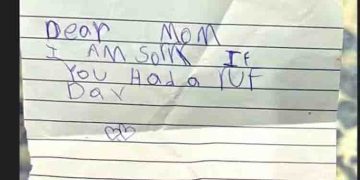 Dear Mom
I AM SoRR IF
You Had a rUF
Day